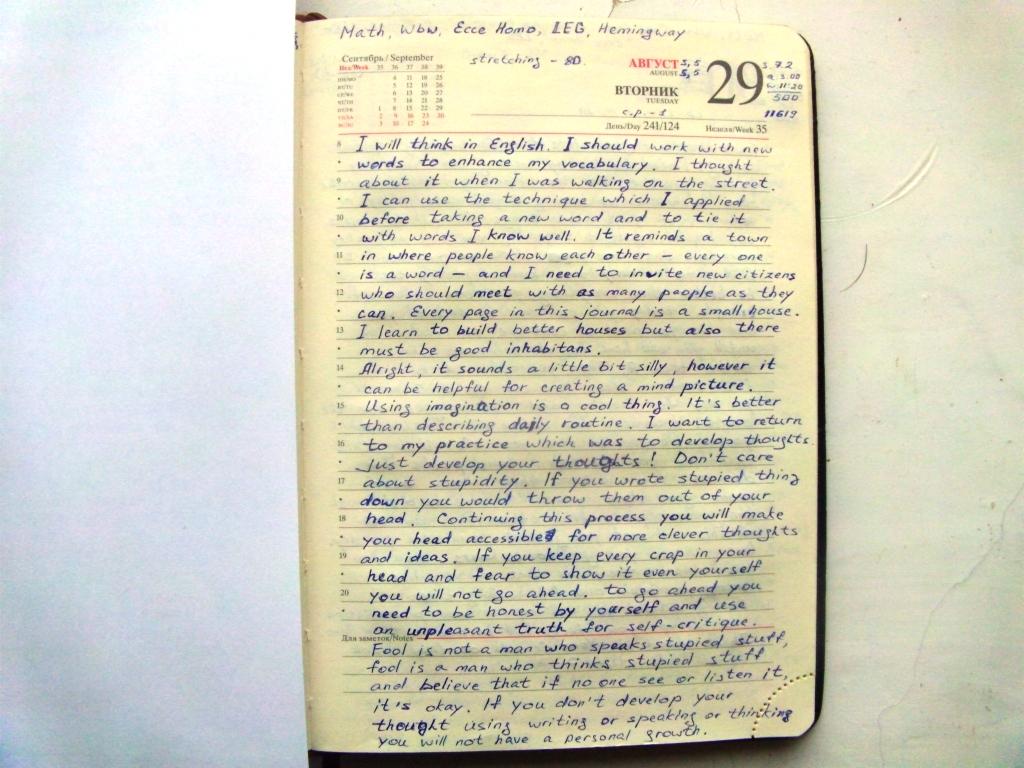 Math, Wbw, Ecce Homo, LEG, Hemingway
Сентябрь / September
Нед/Week 35 36 37 38 39
ПН/MO 4 11 18 25
ВТ/TU 5 12 19 26
СР/WE 6 13 20 27
ЧТ/TH 7 14 21 28
ПТ/FR 1 8 15 22 29
СБ/SA 2 9 16 23 30
ВС/SU 3 10 17 24
stretching - 80.
АВГУСТ 5,5
AUGUST 5,5
ВТОРНИК
TUESDAY
29
s. 7.2
a 3.00
w. 11:20
500
11619
с.р. - 1
День/Day 241/124 Неделя/Week 35
8 I will think in English. I should work with new
words to enhance my vocabulary. I thought
9 about it when I was walking on the street.
I can use the technique which I applied
10 before taking a new word and to tie it
with words I know well. It reminds a town
11 in where people know each other – every one
is a word – and I need to invite new citizens
12 who should meet with as many people as they
can. Every page in this journal is a small house.
13 I learn to build better houses but also there
must be good inhabitans.
14 Alright, it sounds a little bit silly, however it
can be helpful for creating a mind picture.
15 Using imagination is a cool thing. It's better
than describing daily routine. I want to return
16 to my practice which was to develop thoughts.
Just develop your thoughts! Don't care
17 about stupidity. If you wrote stupied thing
down you would throw them out of your
18 head. Continuing this process you will make
your head accessible for more clever thoughts
19 and ideas. If you keep every crap in your
head and fear to show it even yourself
20 you will not go ahead. to go ahead you
need to be honest by yourself and use
an unpleasant truth for self-critique.
Для заметок/Notes
Fool is not a man who speaks stupied stuff,
fool is a man who thinks stupied stuff
and believe that if no one see or listen it,
it's okay. If you don't develop your
thought using writing or speaking or thinking
you will not have a personal growth.